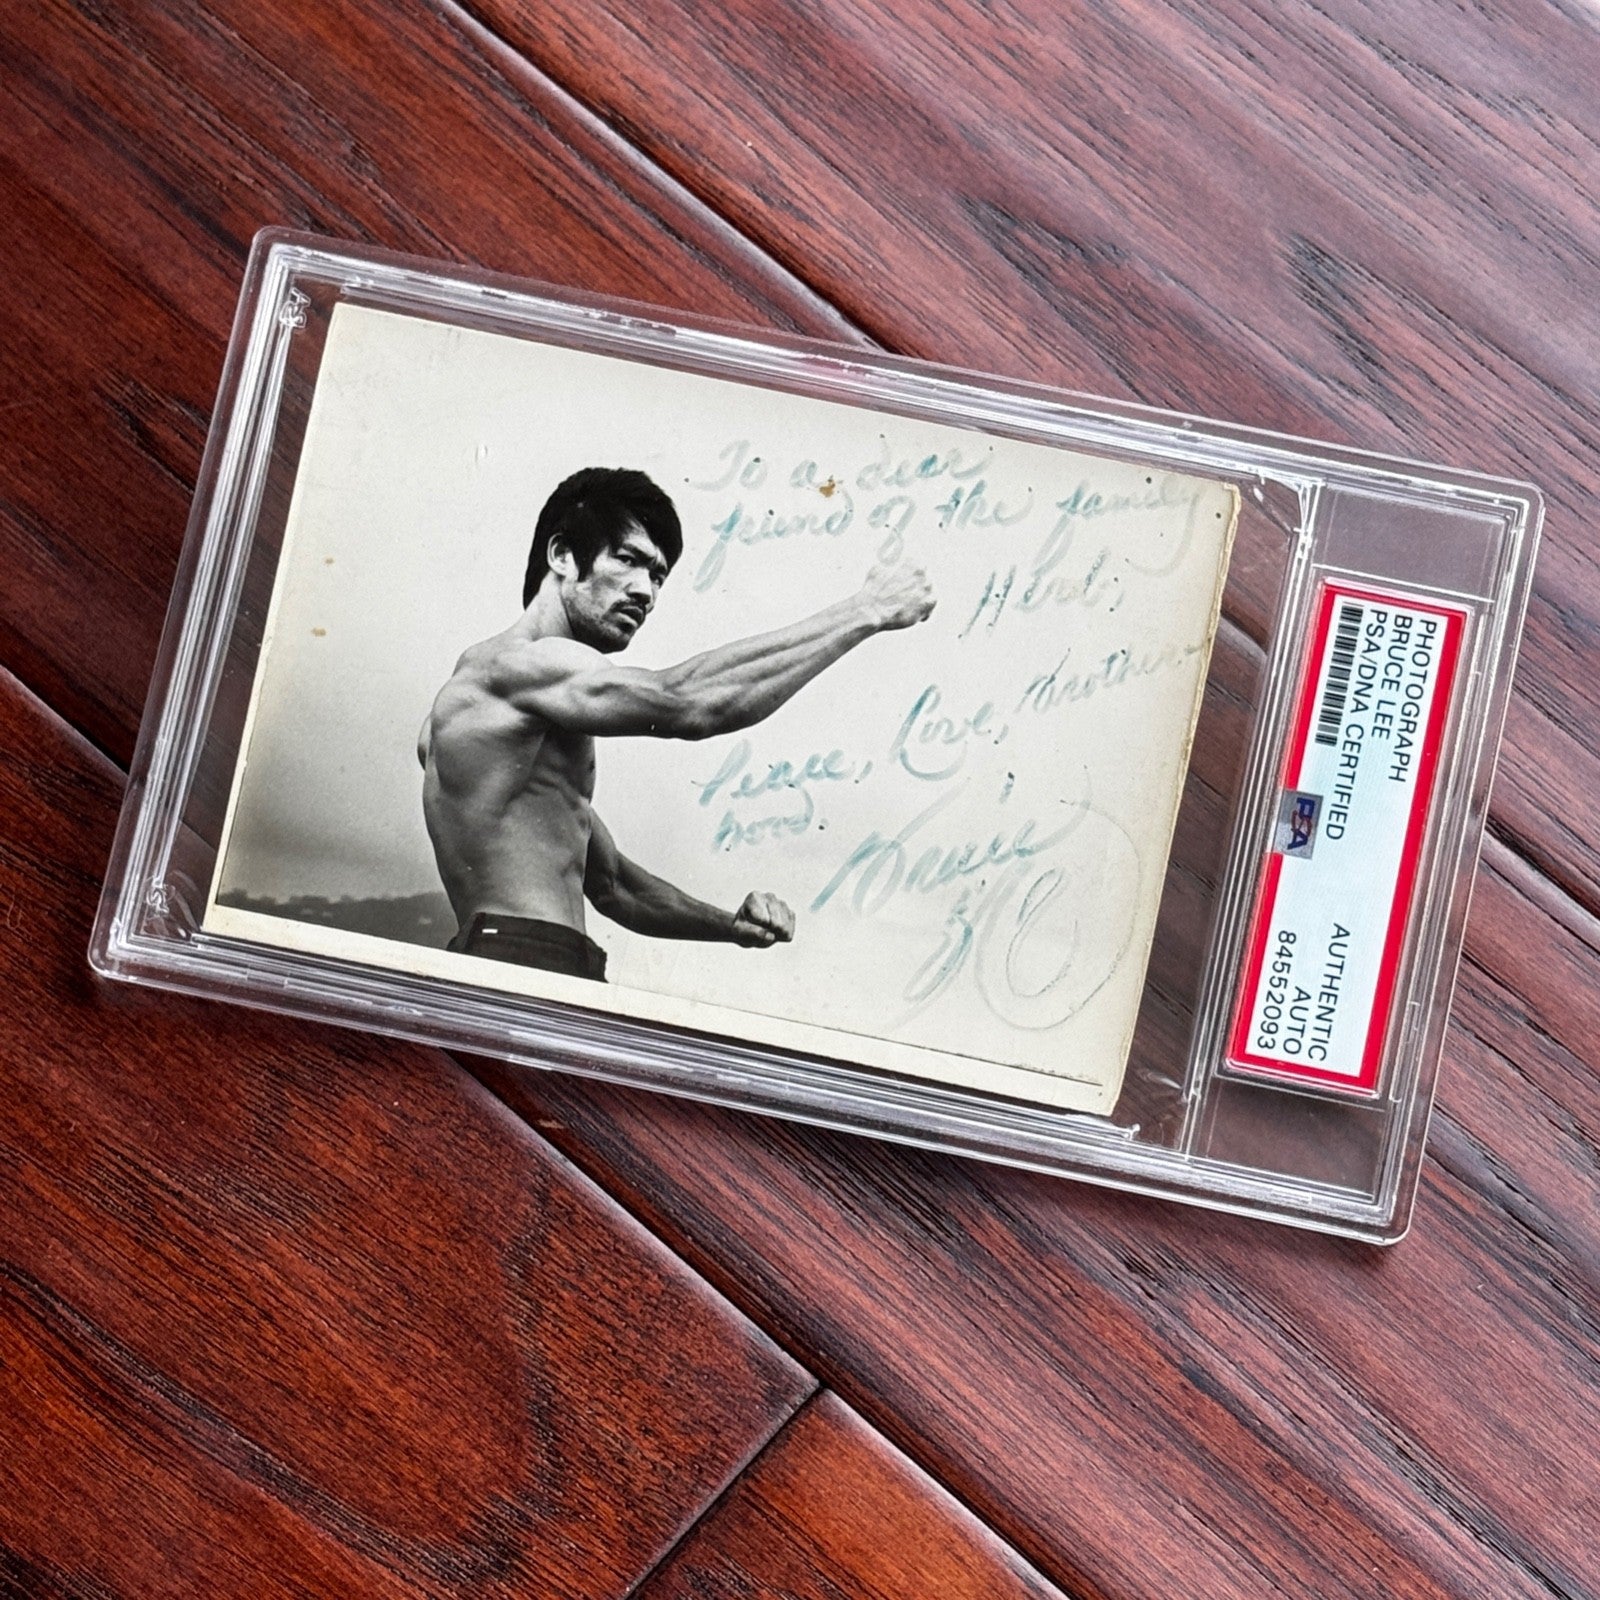 To a dear
friend of the family
Herb,
Peace, Love, Brother-
hood.
Bruce
PHOTOGRAPH
BRUCE LEE
PSA/DNA CERTIFIED
AUTHENTIC
AUTO
84552093
PSA